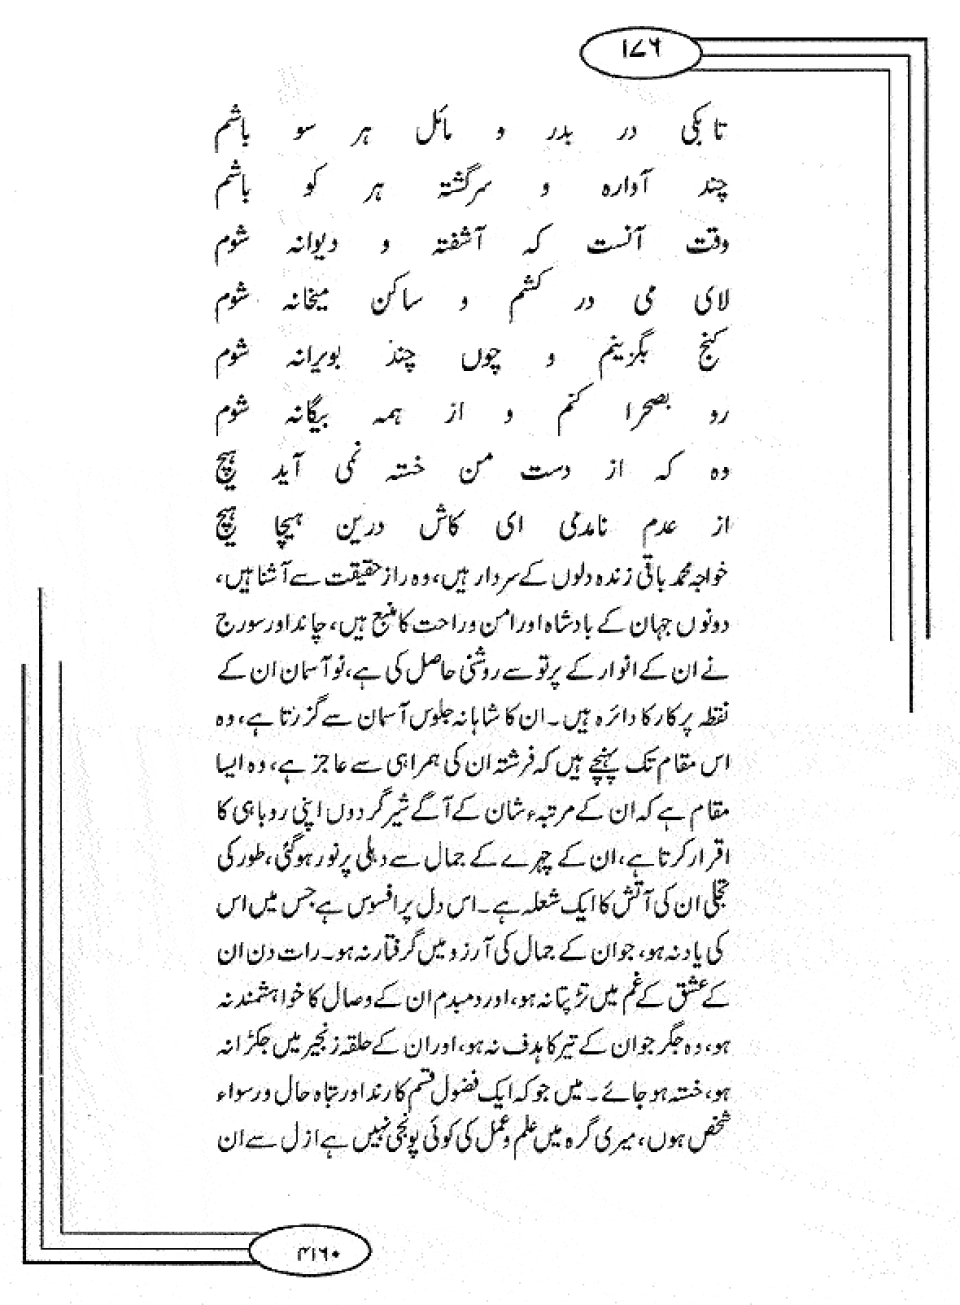 ۱۷۶
تا بکی در بدر و مائل ہر سو باشم
چند آوارہ و سرگشتۂ ہر کو باشم
وقت آنست کہ آشفتہ و دیوانہ شوم
لای می در کشم و ساکن میخانہ شوم
کنج بگزینم و چوں چند بویرانہ شوم
رو بصحرا کنم و از ہمہ بیگانہ شوم
وہ کہ از دست من خستہ نمی آید ہیچ
از عدم نامدمی ای کاش درین ہیچا ہیچ
خواجہ محمد باقی زندہ دلوں کے سردار ہیں، وہ راز حقیقت سے آشنا ہیں،
دونوں جہان کے بادشاہ اور امن و راحت کا منبع ہیں، چاند اور سورج
نے ان کے انوار کے پرتو سے روشنی حاصل کی ہے، نو آسمان ان کے
نقطہ پرکار کا دائرہ ہیں۔ ان کا شاہانہ جلوس آسمان سے گزرتا ہے، وہ
اس مقام تک پہنچے ہیں کہ فرشتہ ان کی ہمراہی سے عاجز ہے، وہ ایسا
مقام ہے کہ ان کے مرتبہء شان کے آگے شیر گردوں اپنی روباہی کا
اقرار کرتا ہے، ان کے چہرے کے جمال سے دہلی پرنور ہوگئی، طور کی
تجلی ان کی آتش کا ایک شعلہ ہے۔ اس دل پر افسوس ہے جس میں اس
کی یاد نہ ہو، جو ان کے جمال کی آرزو میں گرفتار نہ ہو۔ رات دن ان
کے عشق کے غم میں تڑپتا نہ ہو، اور دمبدم ان کے وصال کا خواہشمند نہ
ہو، وہ جگر جو ان کے تیر کا ہدف نہ ہو، اور ان کے حلقہ زنجیر میں جکڑا نہ
ہو، خستہ ہو جائے۔ میں جو کہ ایک فضول قسم کا رند اور تباہ حال و رسواء
شخص ہوں، میری گرہ میں علم و عمل کی کوئی پونجی نہیں ہے ازل سے ان
۳۱۶۰